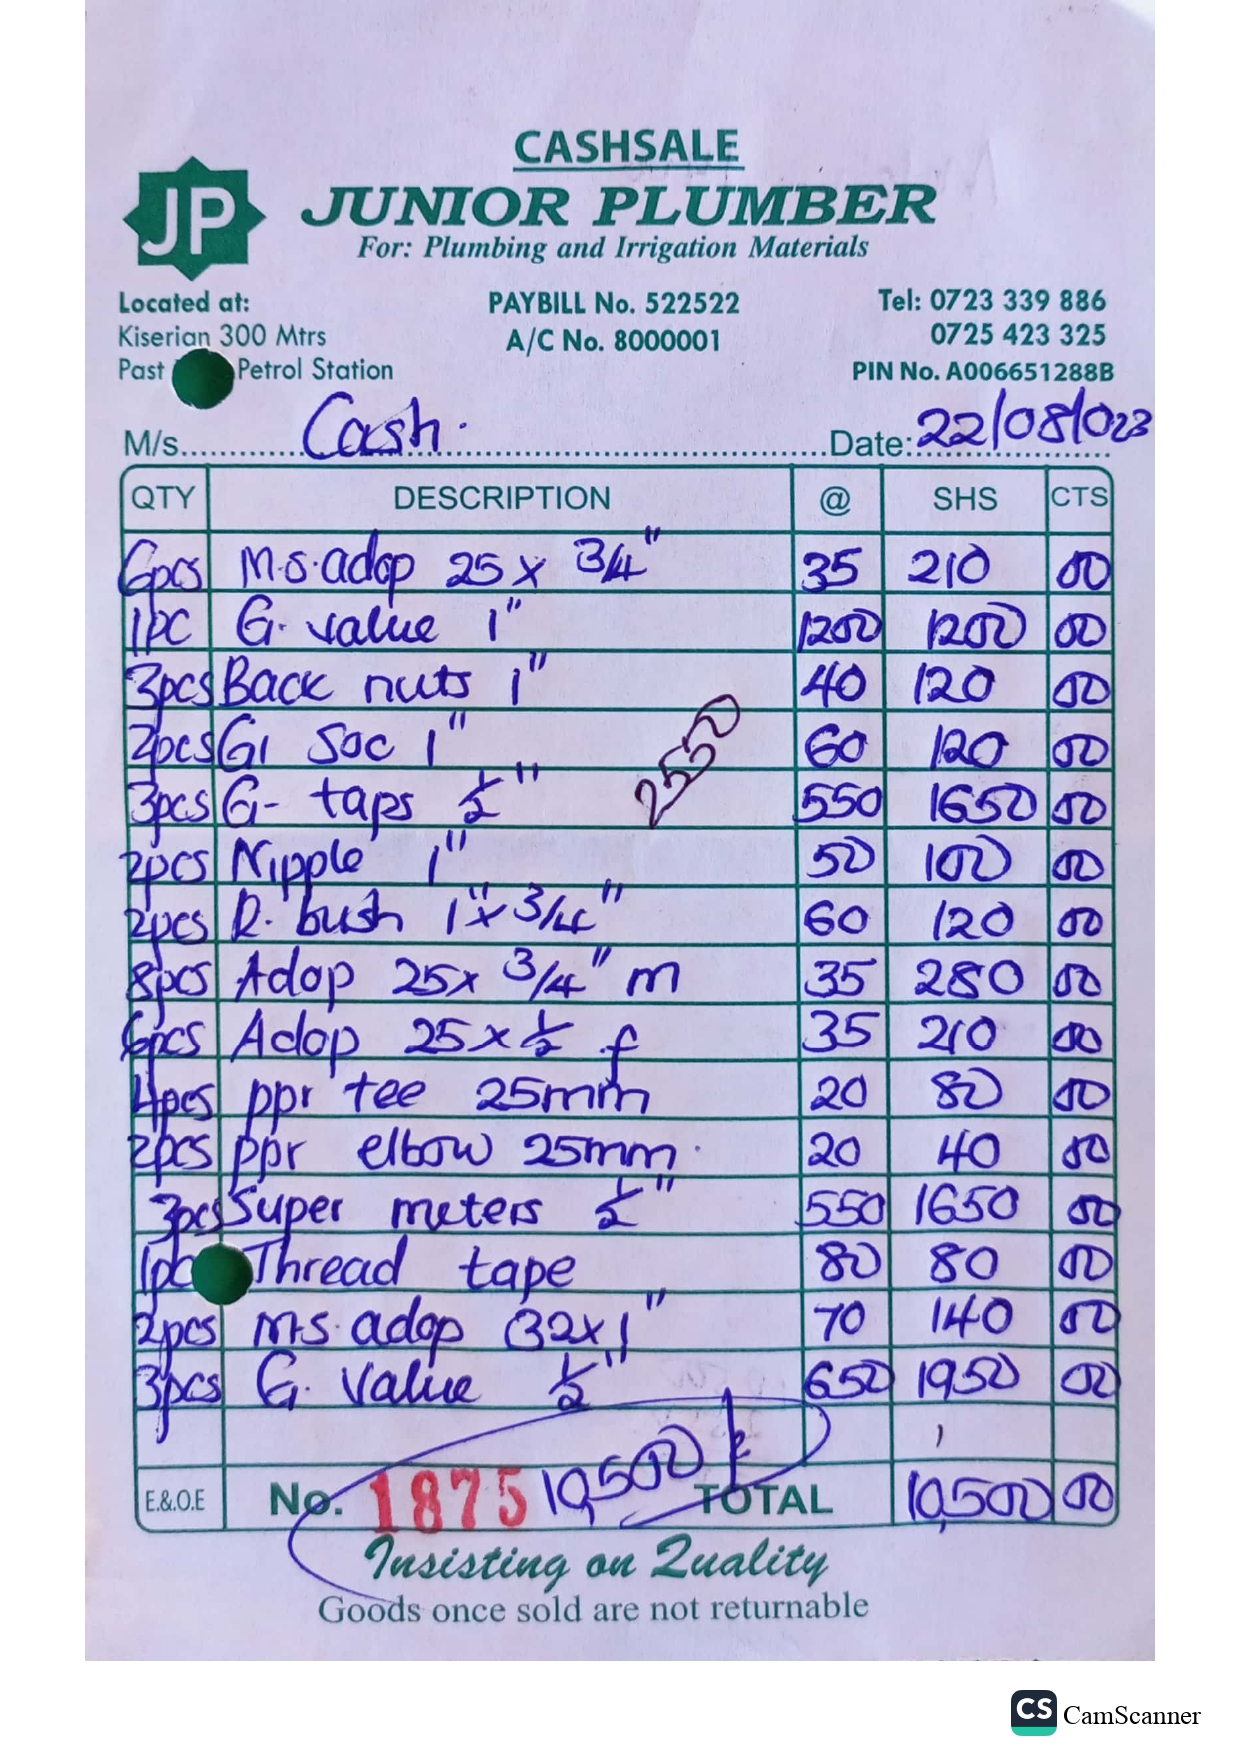 CASHSALE
JP
JUNIOR PLUMBER
For: Plumbing and Irrigation Materials
Located at: PAYBILL No. 522522 Tel: 0723 339 886
Kiserian 300 Mtrs A/C No. 8000001 0725 423 325
Past Petrol Station PIN No. A006651288B
M/s. Cash. Date: 22/08/023
QTY DESCRIPTION @ SHS CTS
6pcs M.S. adop 25 x 3/4" 35 210 00
1pc G. value 1" 1200 1200 00
3pcs Back nuts 1" 40 120 00
2pcs GI Soc 1" 60 120 00
2550
3pcs G- taps 1/2" 550 1650 00
2pcs Nipple 1" 50 100 00
2pcs R. bush 1" x 3/4" 60 120 00
8pcs Adop 25x 3/4" m 35 280 00
6pcs Adop 25 x 1/2 f 35 210 00
4pcs ppr tee 25mm 20 80 00
2pcs ppr elbow 25mm. 20 40 00
3pcs Super meters 1/2" 550 1650 00
1pc Thread tape 80 80 00
2pcs M.S. adop 32x1" 70 140 00
3pcs G. value 1/2" 650 1950 00
E.&O.E No. 1875 10,500 TOTAL 10,500 00
Insisting on Quality
Goods once sold are not returnable
CS CamScanner